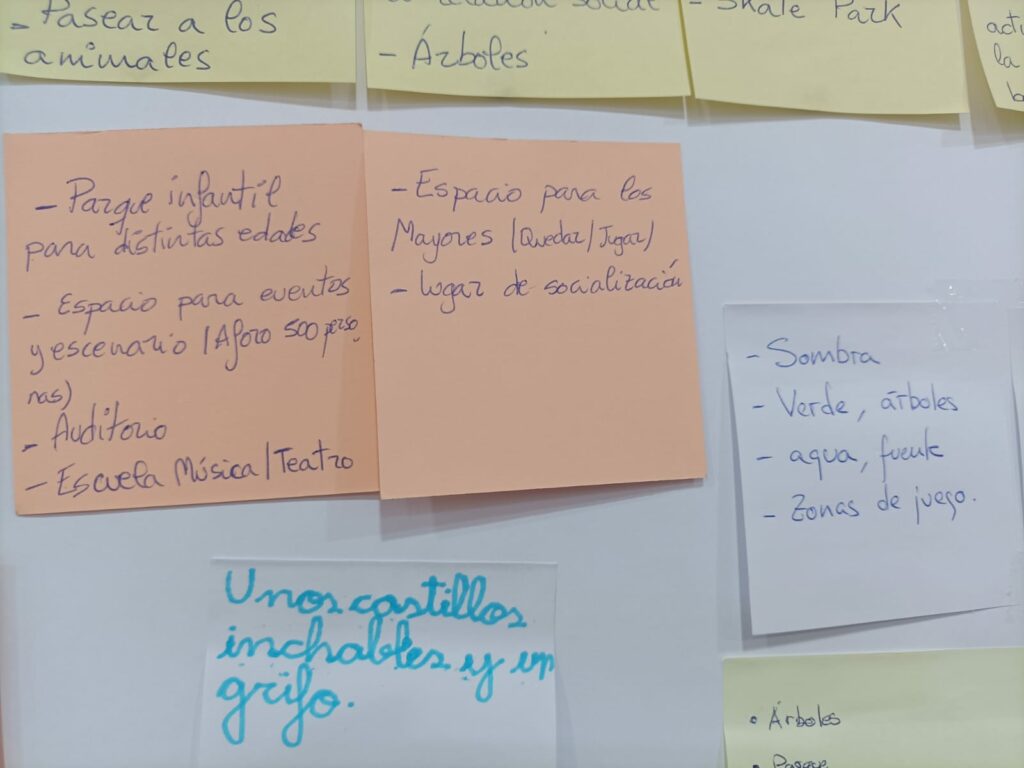 - Pasear a los
animales
- Árboles
- Skate Park
la
- Parque infantil
para distintas edades
- Espacio para eventos
y escenario (Aforo 500 perso
nas)
- Auditorio
- Escuela Música/Teatro
- Espacio para los
Mayores (Quedar/Jugar)
- lugar de socialización
- Sombra
- Verde, árboles
- agua, fuente
- Zonas de juego.
Unos castillos
inchables y un
grifo.
• Árboles
• Parque